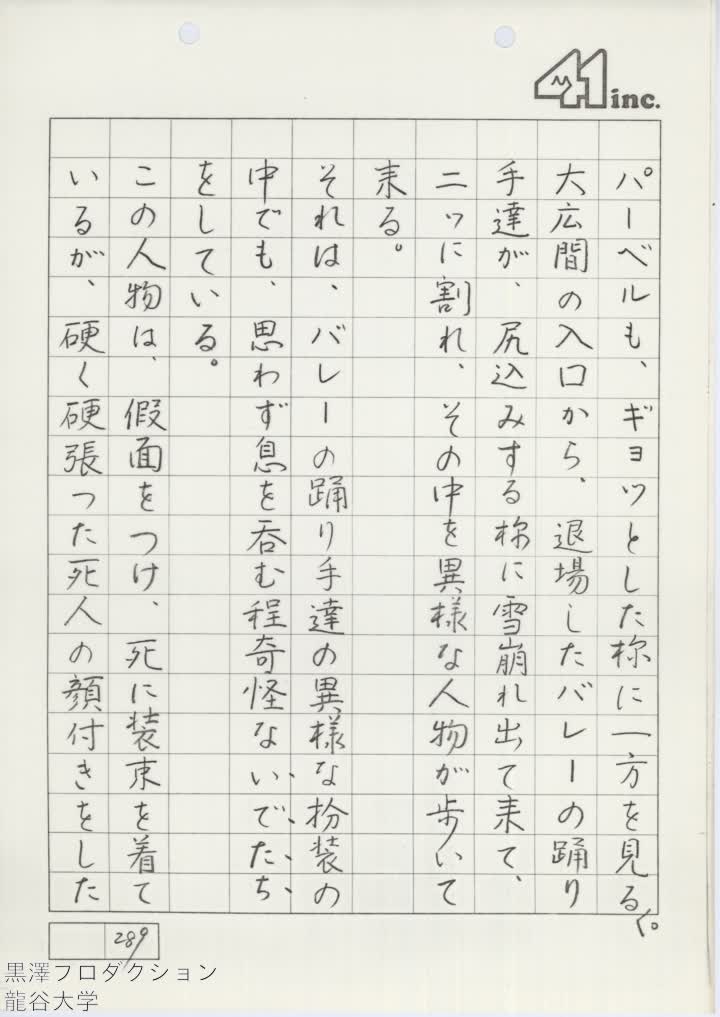 41 inc.
パーベルも、ギョッとした様に一方を見る。
大広間の入口から、退場したバレーの踊り
手達が、尻込みする様に雪崩れ出て来て、
二ッに割れ、その中を異様な人物が歩いて
来る。
それは、バレーの踊り手達の異様な扮装の
中でも、思わず息を呑む程奇怪ないでたち
をしている。
この人物は、假面をつけ、死に装束を着て
いるが、硬く硬張った死人の顔付きをした
289
黒澤プロダクション
龍谷大学